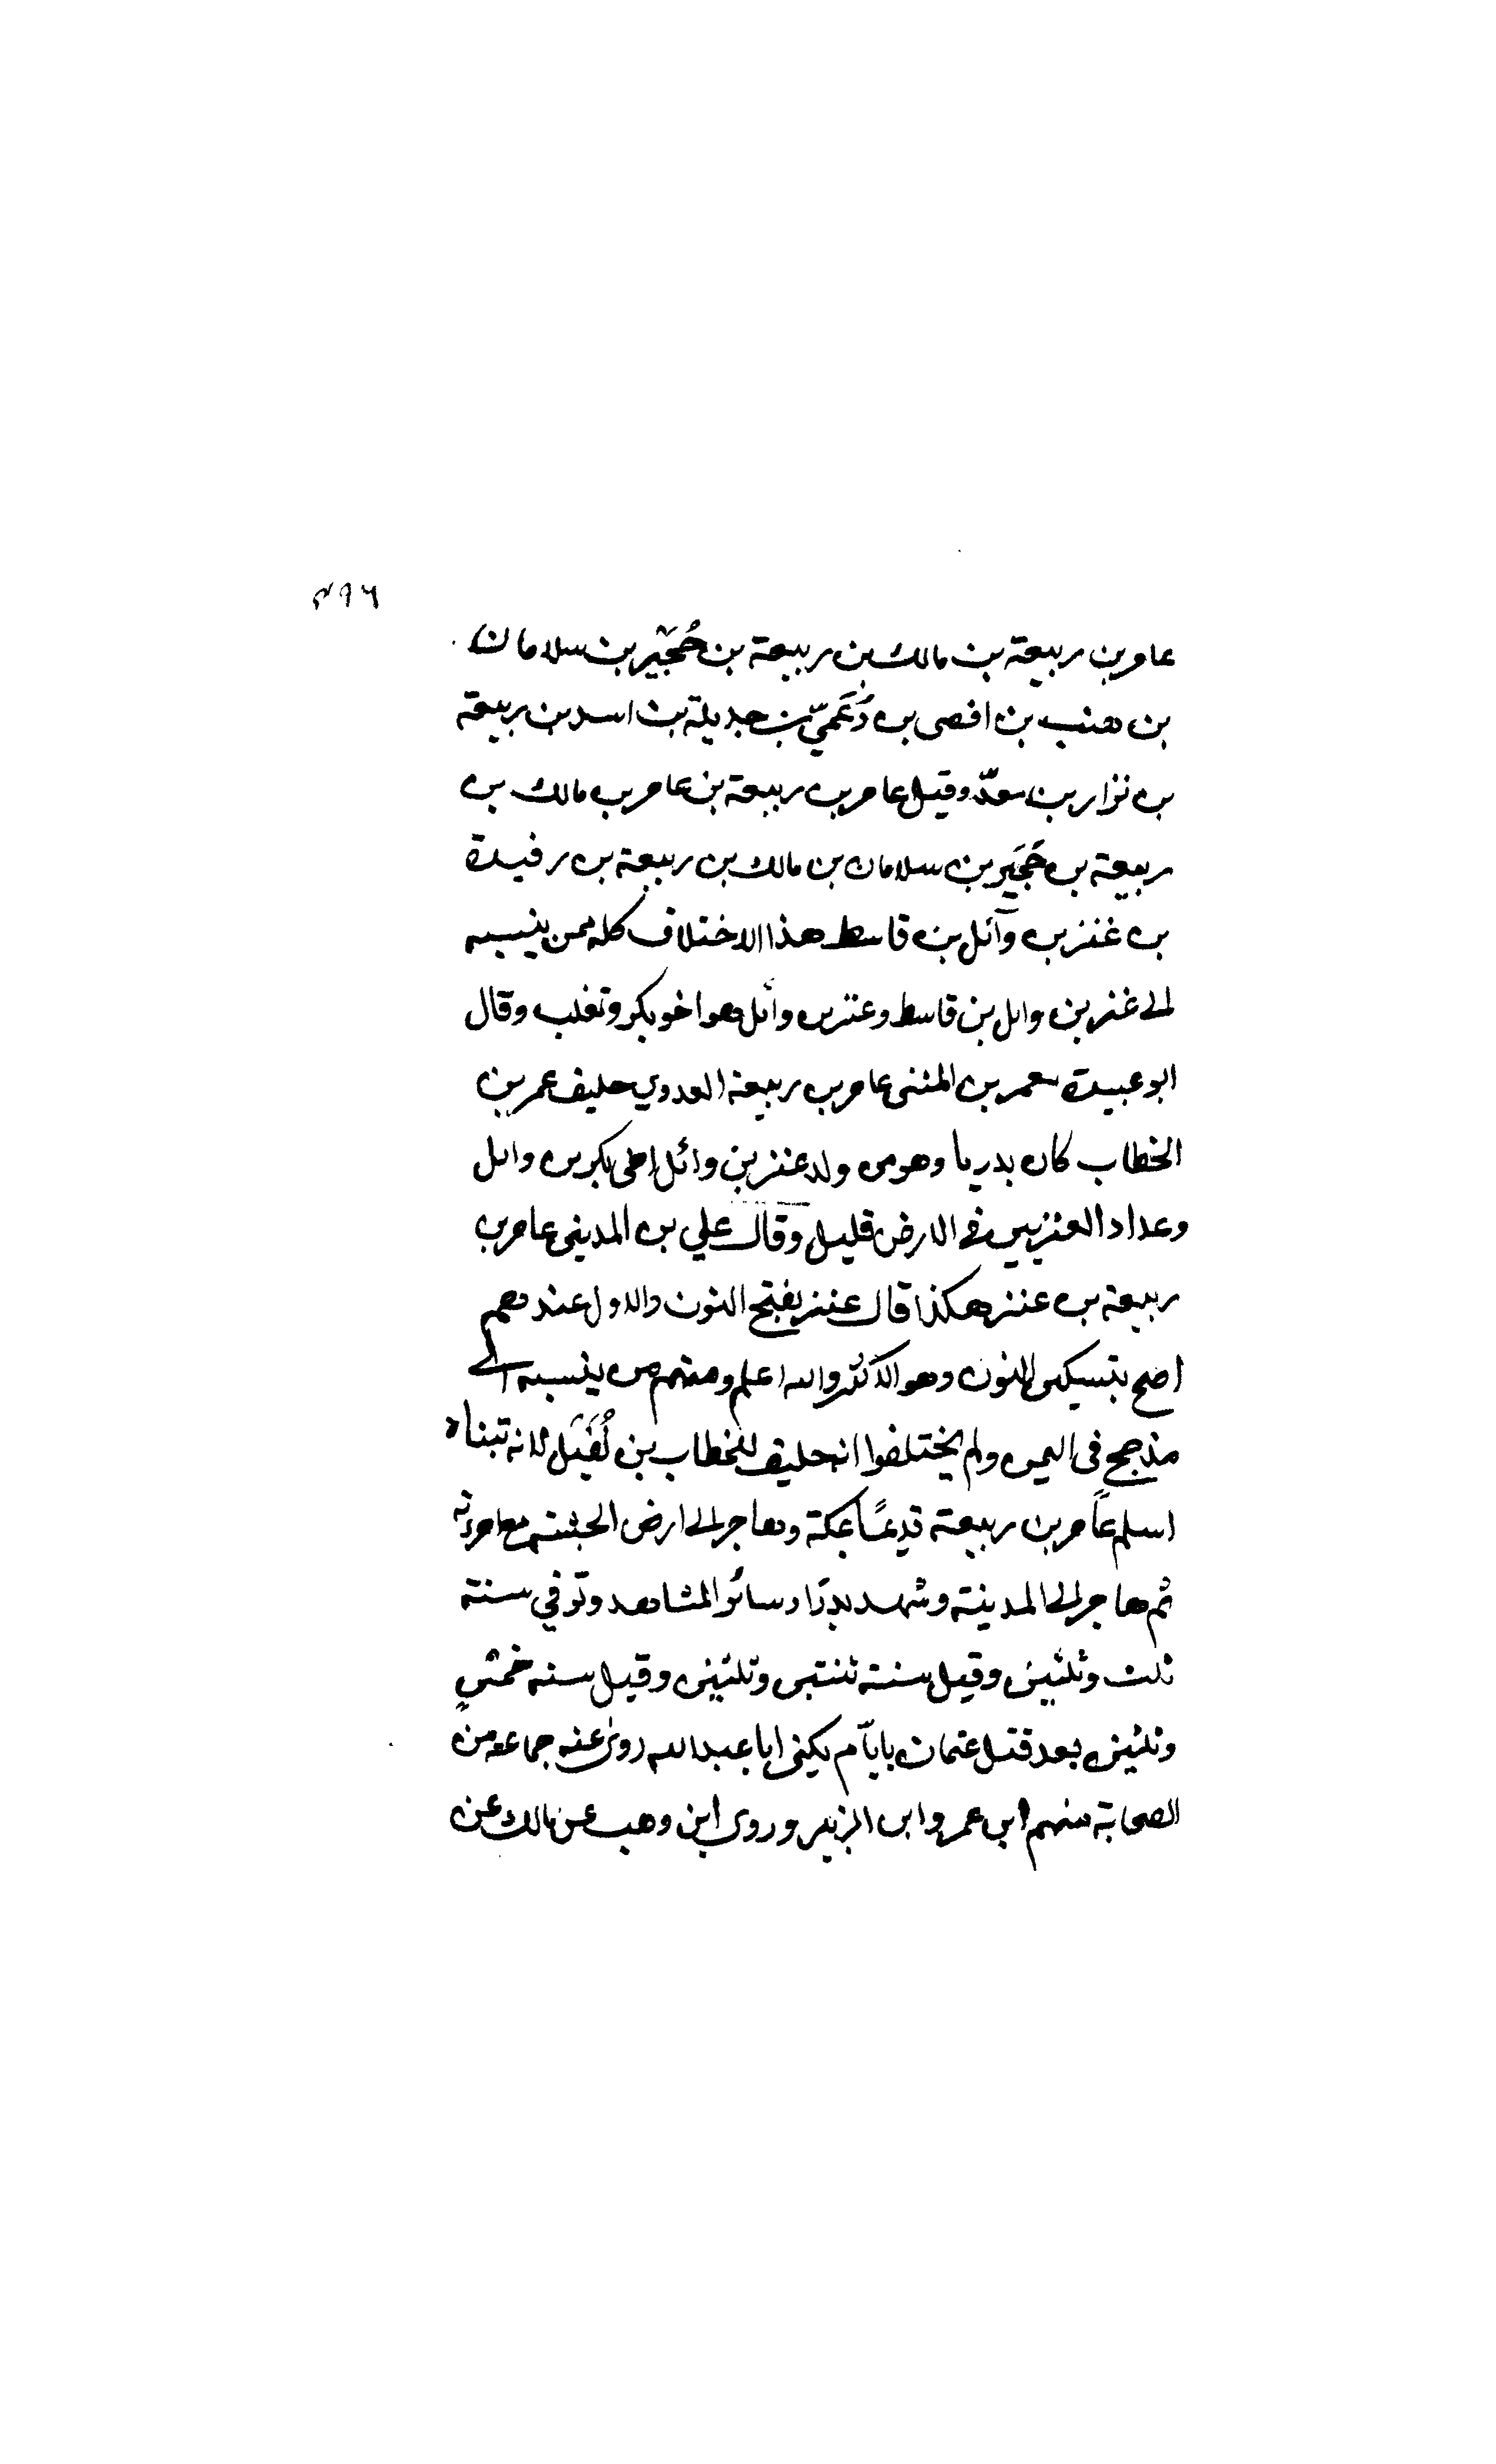 ٤٩٦
عامر بن ربيعة بن مالك بن ربيعة بن حُجَيْر بن سلامان
بن هنب بن افصى بن دُعْميّ بن جديلة بن اسد بن ربيعة
بن نزار بن معدّ وقيل عامر بن ربيعة بن عامر بن مالك بن
ربيعة بن حَجَير بن سلامان بن مالك بن ربيعة بن رفيدة
بن عنز بن وآئل بن قاسط هذا الاختلاف كله ممن ينسبه
الى عنز بن وايل بن قاسط وعنز بن وائل هو اخو بكر وتغلب وقال
ابو عبيدة معمر بن المثنى عامر بن ربيعة العدوي حليف عمر بن
الخطاب كان بدريا وهو من ولد عنز بن وائل اخى بكر بن وايل
وعداد العنزيين في الارض قليل وقال علي بن المدينى عامر بن
ربيعة من عنز هكذا قال عنز بفتح النون والاول عندهم
اصح بتسكين النون وهو الاكثر والله اعلم ومنهم من ينسبه الى
مذحج فى اليمن ولم يختلفوا انه حليف للخطاب بن نُفَيَل لانه تبناه
اسلم عامر بن ربيعة قديمًا بمكة وهاجر الى ارض الحبشة مع امرءته
ثم هاجر الى المدينة وشهد بدرًا وسائر المشاهد وتوفي سنة
ثلث وثلثين وقيل سنة ثنتين وثلثين وقيل سنة خمسٍ
وثلثين بعد قتل عثمان بايّام يكنى ابا عبد الله روى عنه جماعة من
الصحابة منهم ابن عمر وابن الزبير وروى ابن وهب عن مالك عن